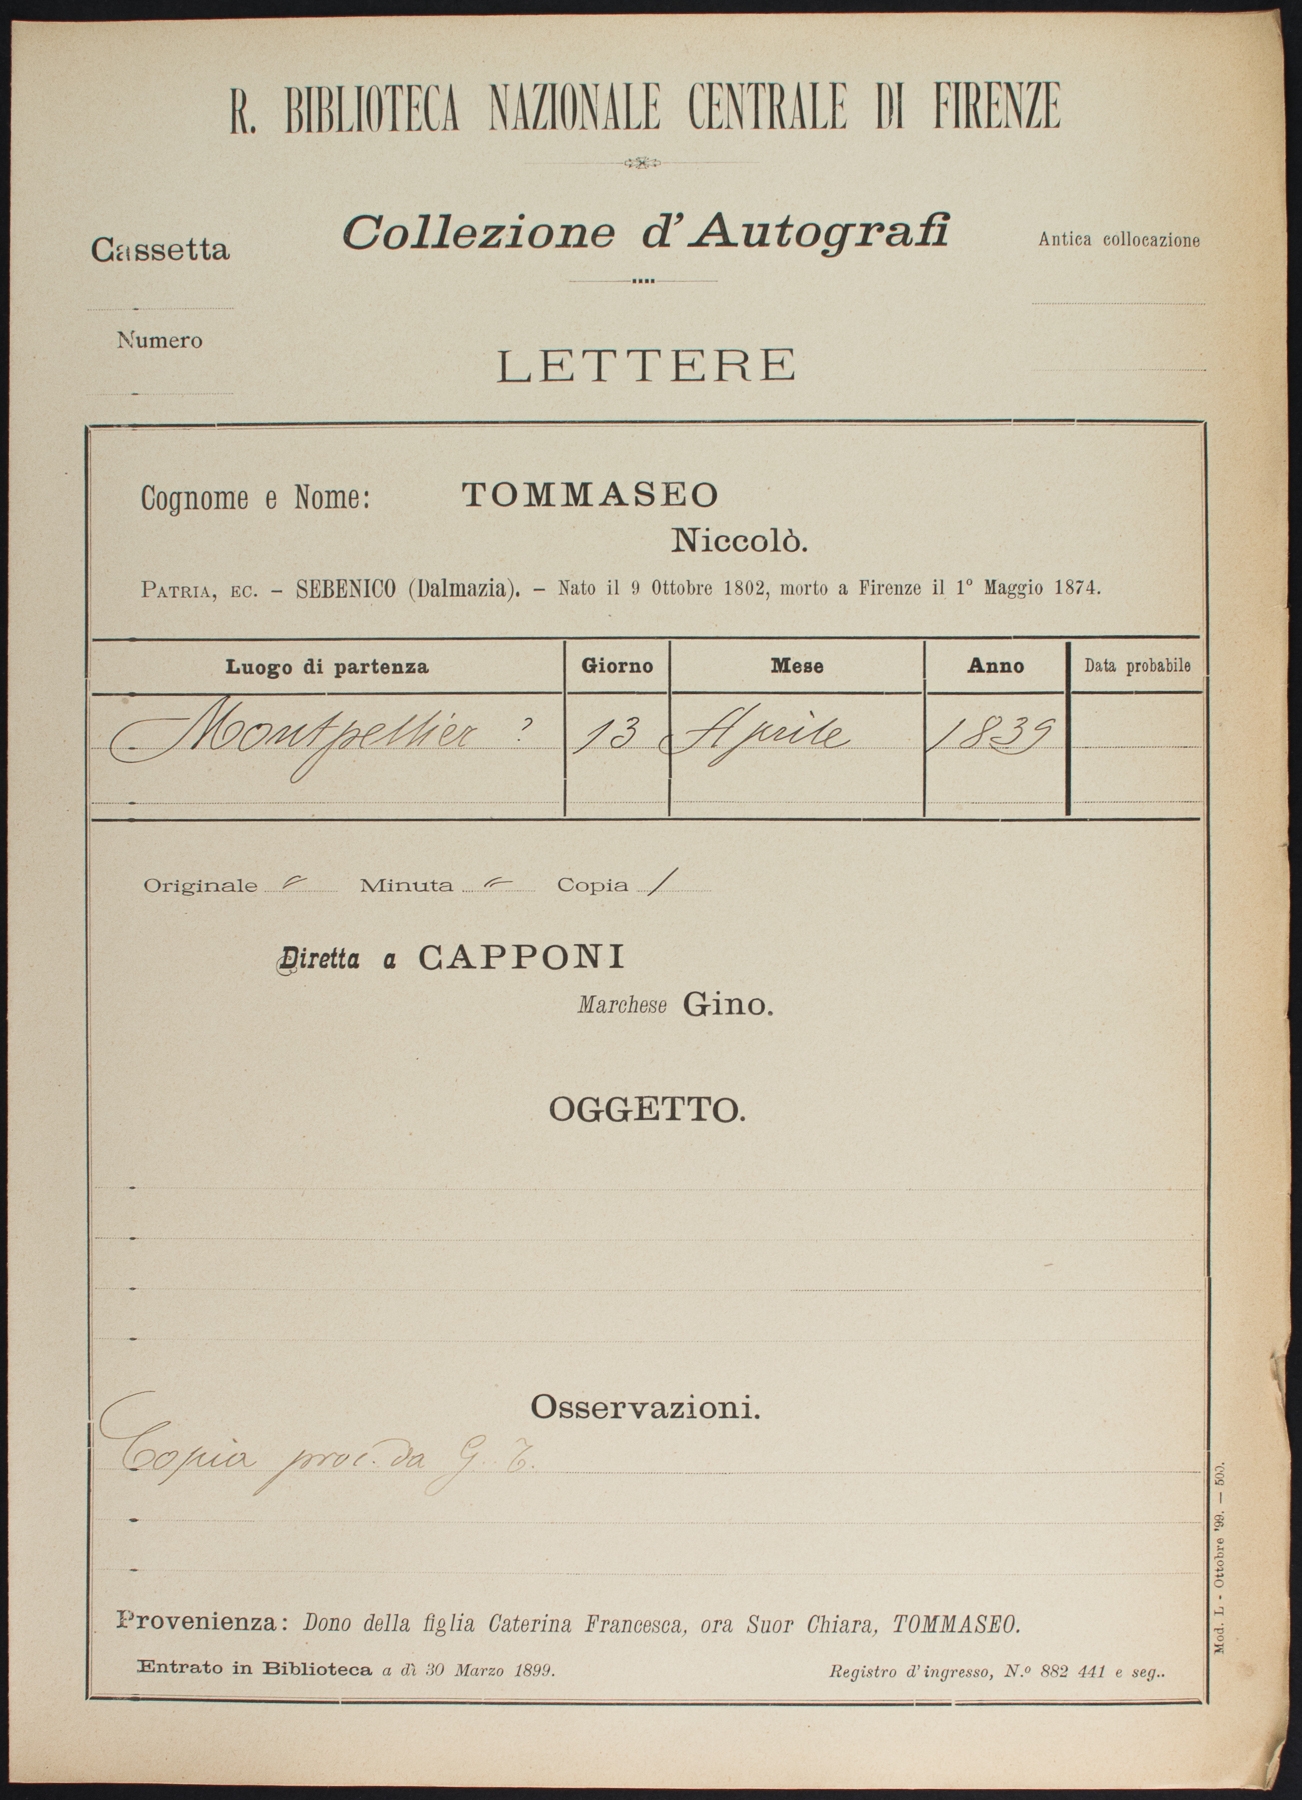 R. BIBLIOTECA NAZIONALE CENTRALE DI FIRENZE
Collezione d'Autografi
Cassetta
Antica collocazione
Numero
LETTERE
Cognome e Nome: TOMMASEO
Niccolò.
PATRIA, EC. – SEBENICO (Dalmazia). – Nato il 9 Ottobre 1802, morto a Firenze il 1º Maggio 1874.
Luogo di partenza Giorno Mese Anno Data probabile
Montpellier ? 13 Aprile 1839
Originale " Minuta " Copia 1
Diretta a CAPPONI
Marchese Gino.
OGGETTO.
Osservazioni.
Copia proc. da G. T.
Provenienza: Dono della figlia Caterina Francesca, ora Suor Chiara, TOMMASEO.
Entrato in Biblioteca a dì 30 Marzo 1899. Registro d'ingresso, N.º 882 441 e seg..
Mod. L - Ottobre '99. — 500.